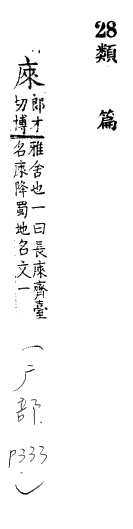 28類篇
庲
郎才
切博
雅舍也一曰長庲齊臺
名庲降蜀地名文一
(广部 P333)